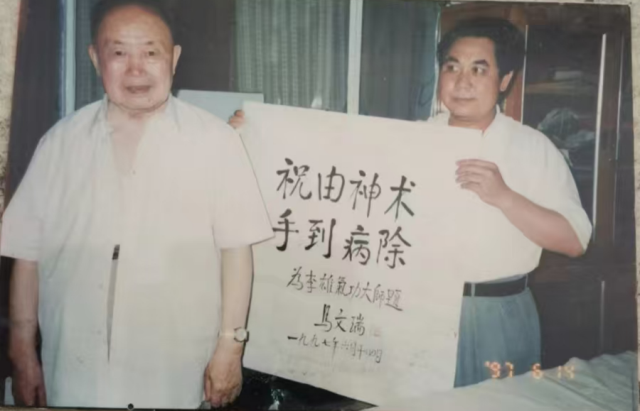 祝由神术
手到病除
为李雄氣功大师题
马文瑞
一九九七年六月十四日
'97 6 14